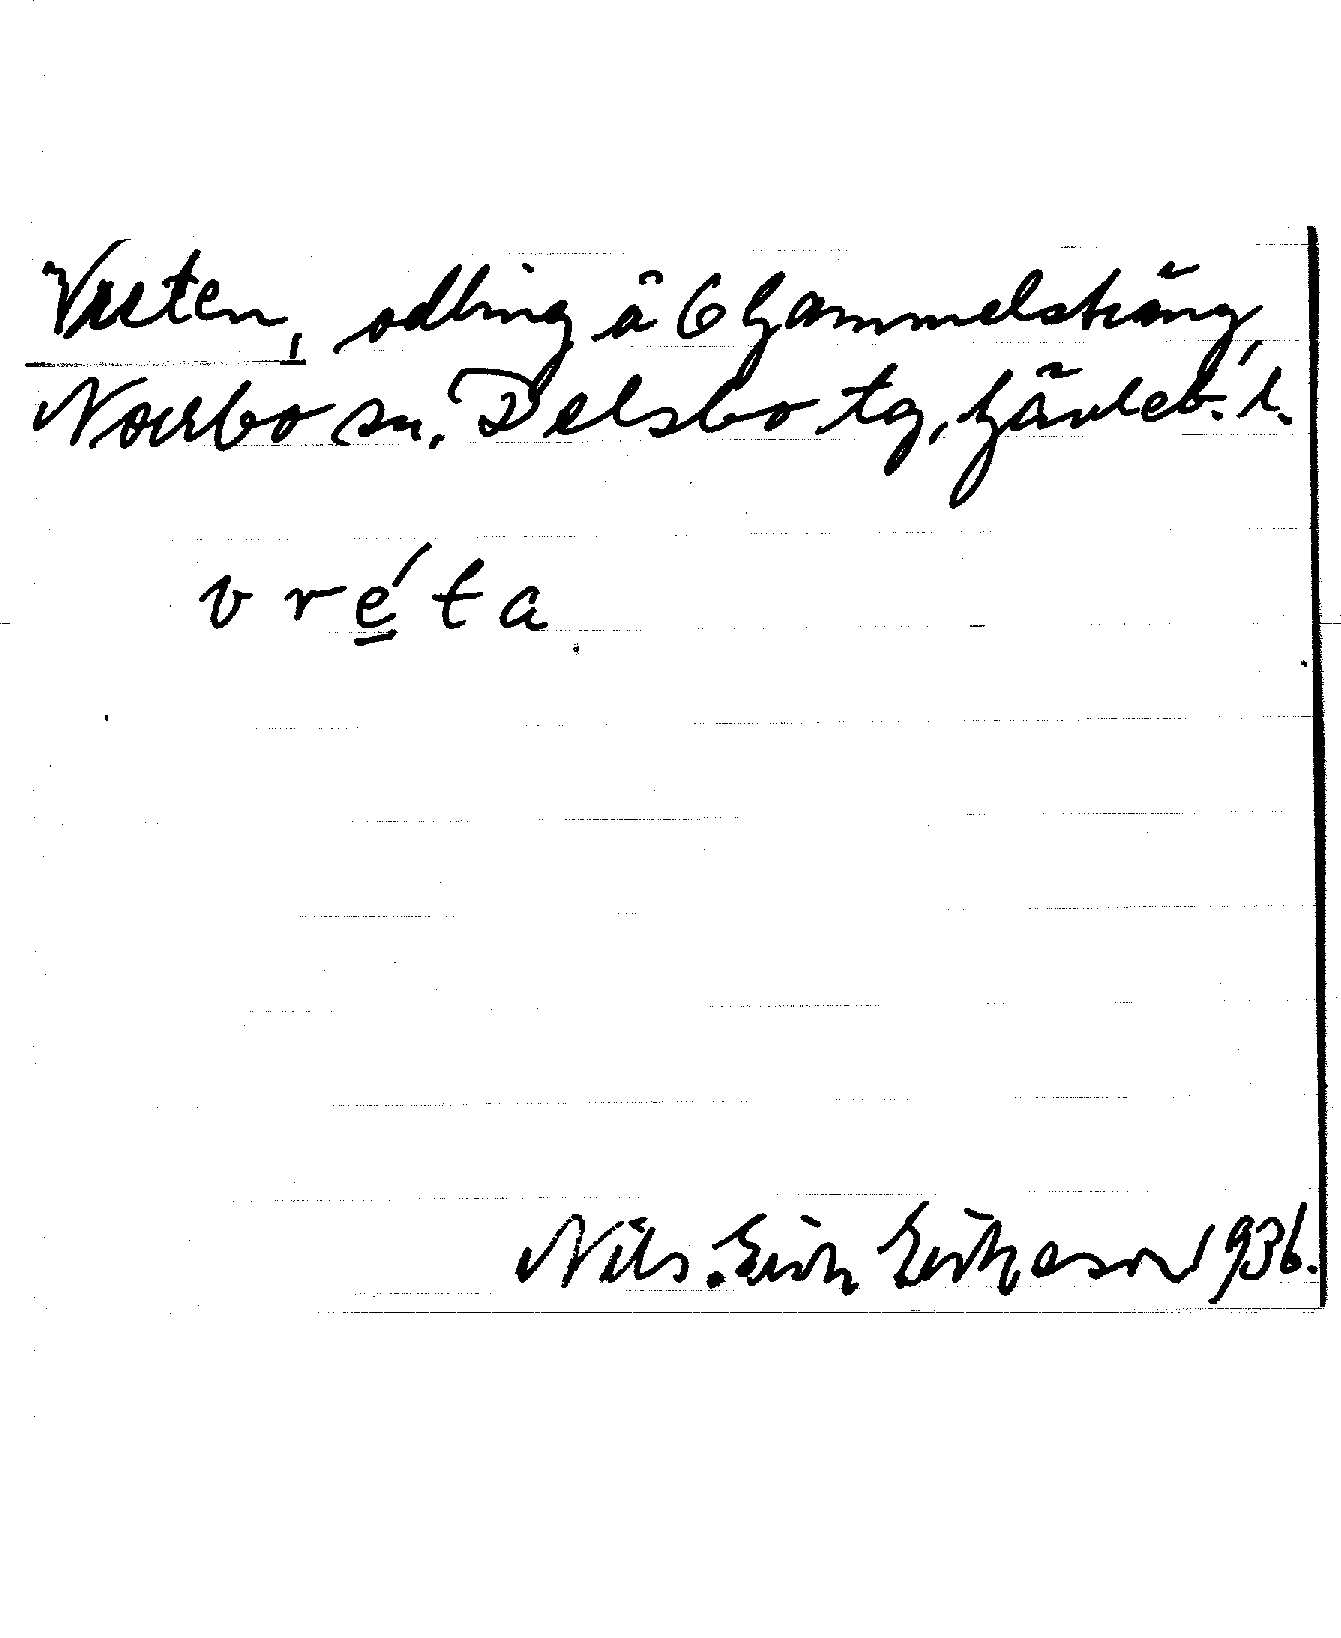 Vreten, odling å 6 Gammelsträng,
Norrbo sn. Delsbo tg, Gävleb. l.
v r é t a
Nils Erik Eriksson 1936.